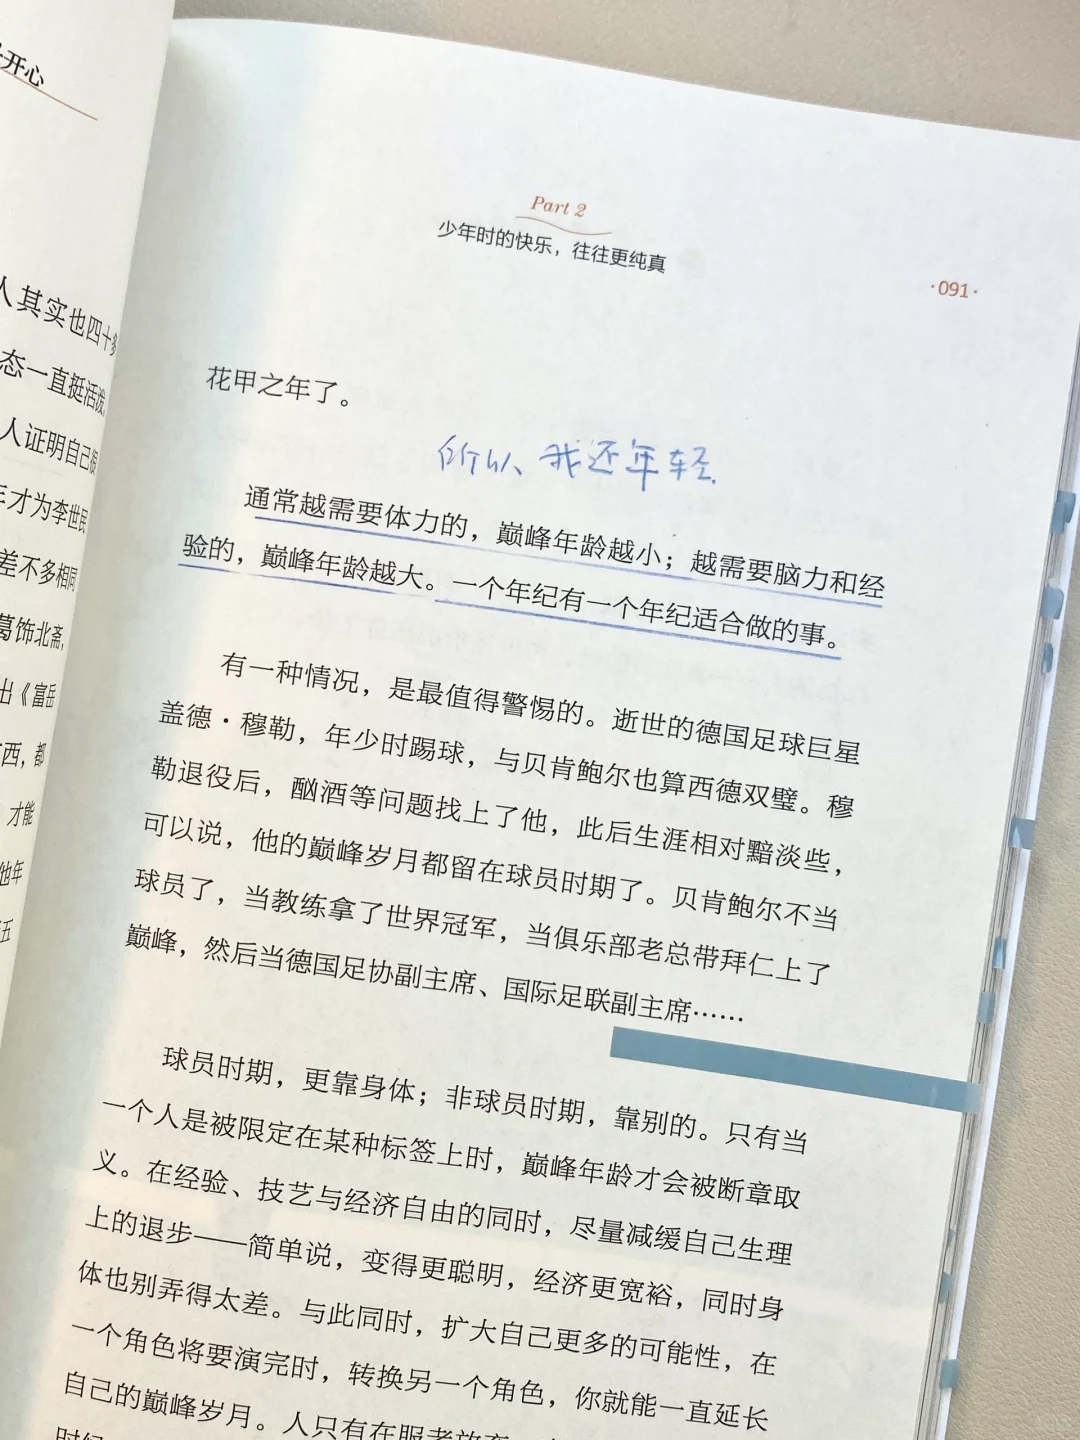 开心
人其实也四十多
态一直挺活泼,
人证明自己很
才为李世民
差不多相同
葛饰北斋,
出《富岳
西，都
才能
他年
五
Part 2
少年时的快乐，往往更纯真
·091·
花甲之年了。
所以、我还年轻.
通常越需要体力的，巅峰年龄越小；越需要脑力和经
验的，巅峰年龄越大。一个年纪有一个年纪适合做的事。
有一种情况，是最值得警惕的。逝世的德国足球巨星
盖德·穆勒，年少时踢球，与贝肯鲍尔也算西德双璧。穆
勒退役后，酗酒等问题找上了他，此后生涯相对黯淡些，
可以说，他的巅峰岁月都留在球员时期了。贝肯鲍尔不当
球员了，当教练拿了世界冠军，当俱乐部老总带拜仁上了
巅峰，然后当德国足协副主席、国际足联副主席……
球员时期，更靠身体；非球员时期，靠别的。只有当
一个人是被限定在某种标签上时，巅峰年龄才会被断章取
义。在经验、技艺与经济自由的同时，尽量减缓自己生理
上的退步——简单说，变得更聪明，经济更宽裕，同时身
体也别弄得太差。与此同时，扩大自己更多的可能性，在
一个角色将要演完时，转换另一个角色，你就能一直延长
自己的巅峰岁月。人只有在服老放弃